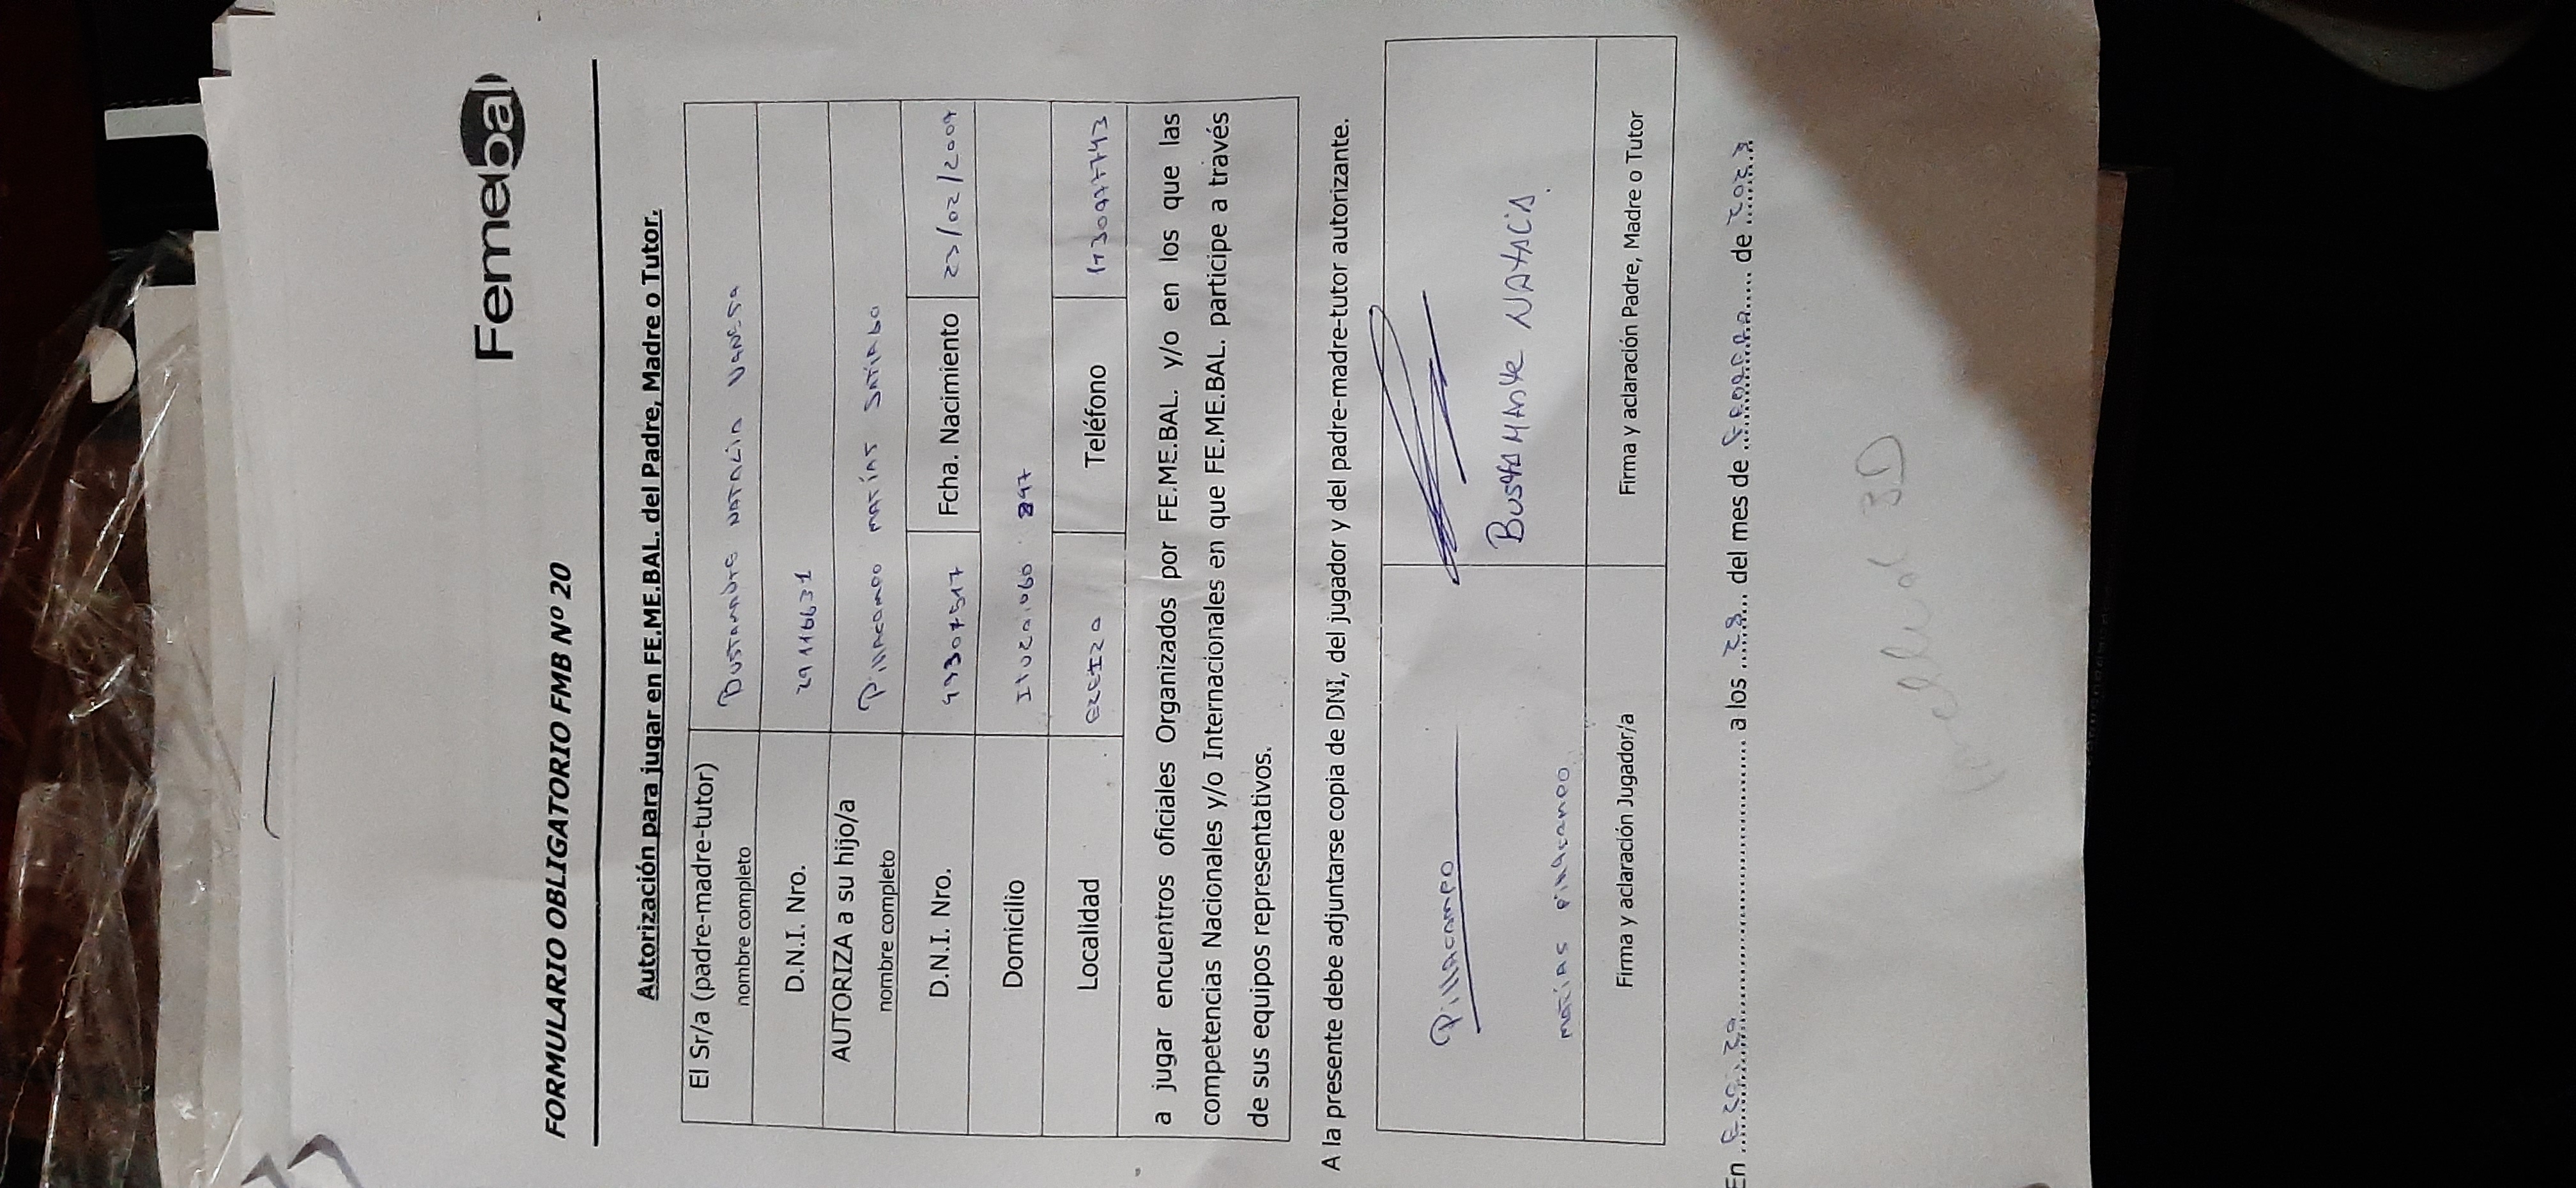 Femebal
FORMULARIO OBLIGATORIO FMB Nº 20
Autorización para jugar en FE.ME.BAL. del Padre, Madre o Tutor.
El Sr/a (padre-madre-tutor) nombre completo BUSTAMANTE NATALIA VANESA
D.N.I. Nro. 29116631
AUTORIZA a su hijo/a nombre completo Pillacampo MATÍAS
D.N.I. Nro. 49307517 Fcha. Nacimiento 23/02/2009
Domicilio 897
Localidad EZEIZA Teléfono
a jugar encuentros oficiales Organizados por FE.ME.BAL. y/o en los que las
competencias Nacionales y/o Internacionales en que FE.ME.BAL. participe a través
de sus equipos representativos.
A la presente debe adjuntarse copia de DNI, del jugador y del padre-madre-tutor autorizante.
Pillacampo
MATÍAS Pillacampo
BUSTAMANTE NATALIA
Firma y aclaración Jugador/a Firma y aclaración Padre, Madre o Tutor
En Ezeiza a los 28 del mes de de 2023